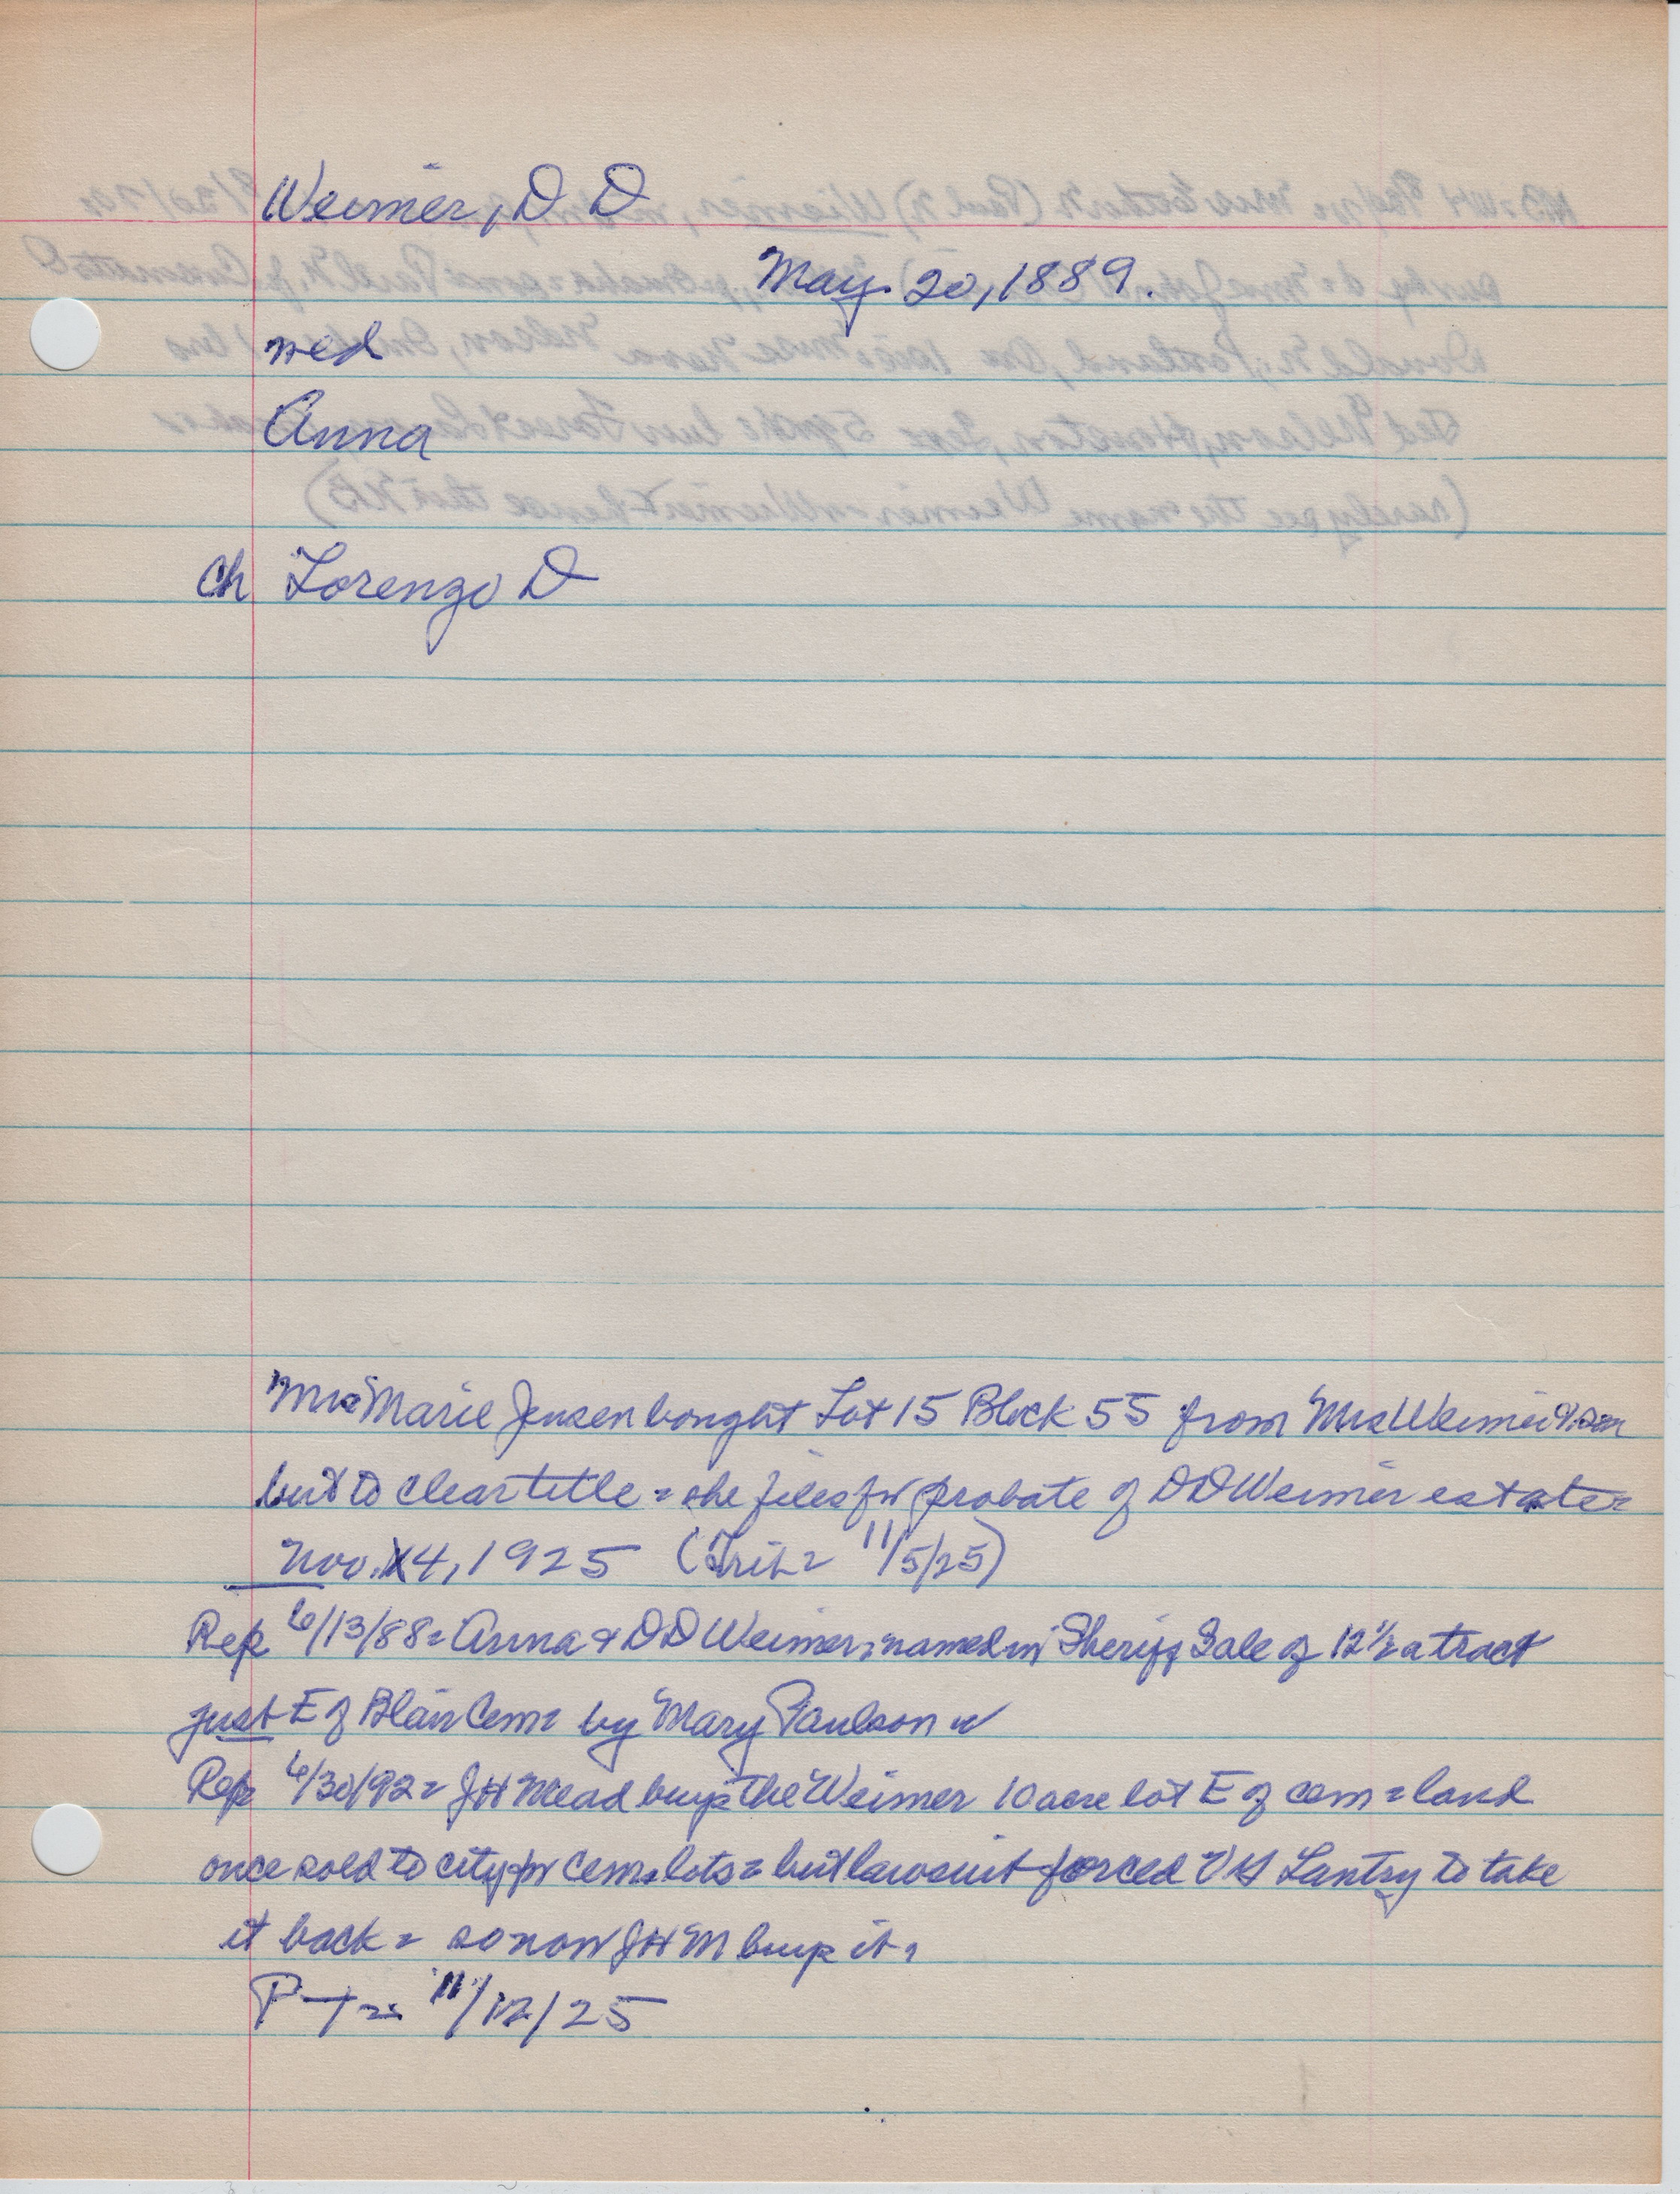 Weimer, D D
May 20, 1889.
wed
Anna
Ch Lorenzo D
Mrs Marie Jensen bought Lot 15 Block 55 from Mrs Weimer & son
but to clear title = she files for probate of DD Weimer estate =
Nov. 4, 1925 (Trib = 11/5/25)
Rep 6/13/88 = Anna & DD Weimer, named in Sheriff Sale of 12 1/2 a tract
just E of Blair Cem = by Mary Paulson
Rep 6/30/92 = JH Mead buys the Weimer 10 acre lot E of cem = land
once sold to city for Cem. lots = but lawsuit forced Lantry to take
it back = so now JHM buys it =
P-T = 11/12/25